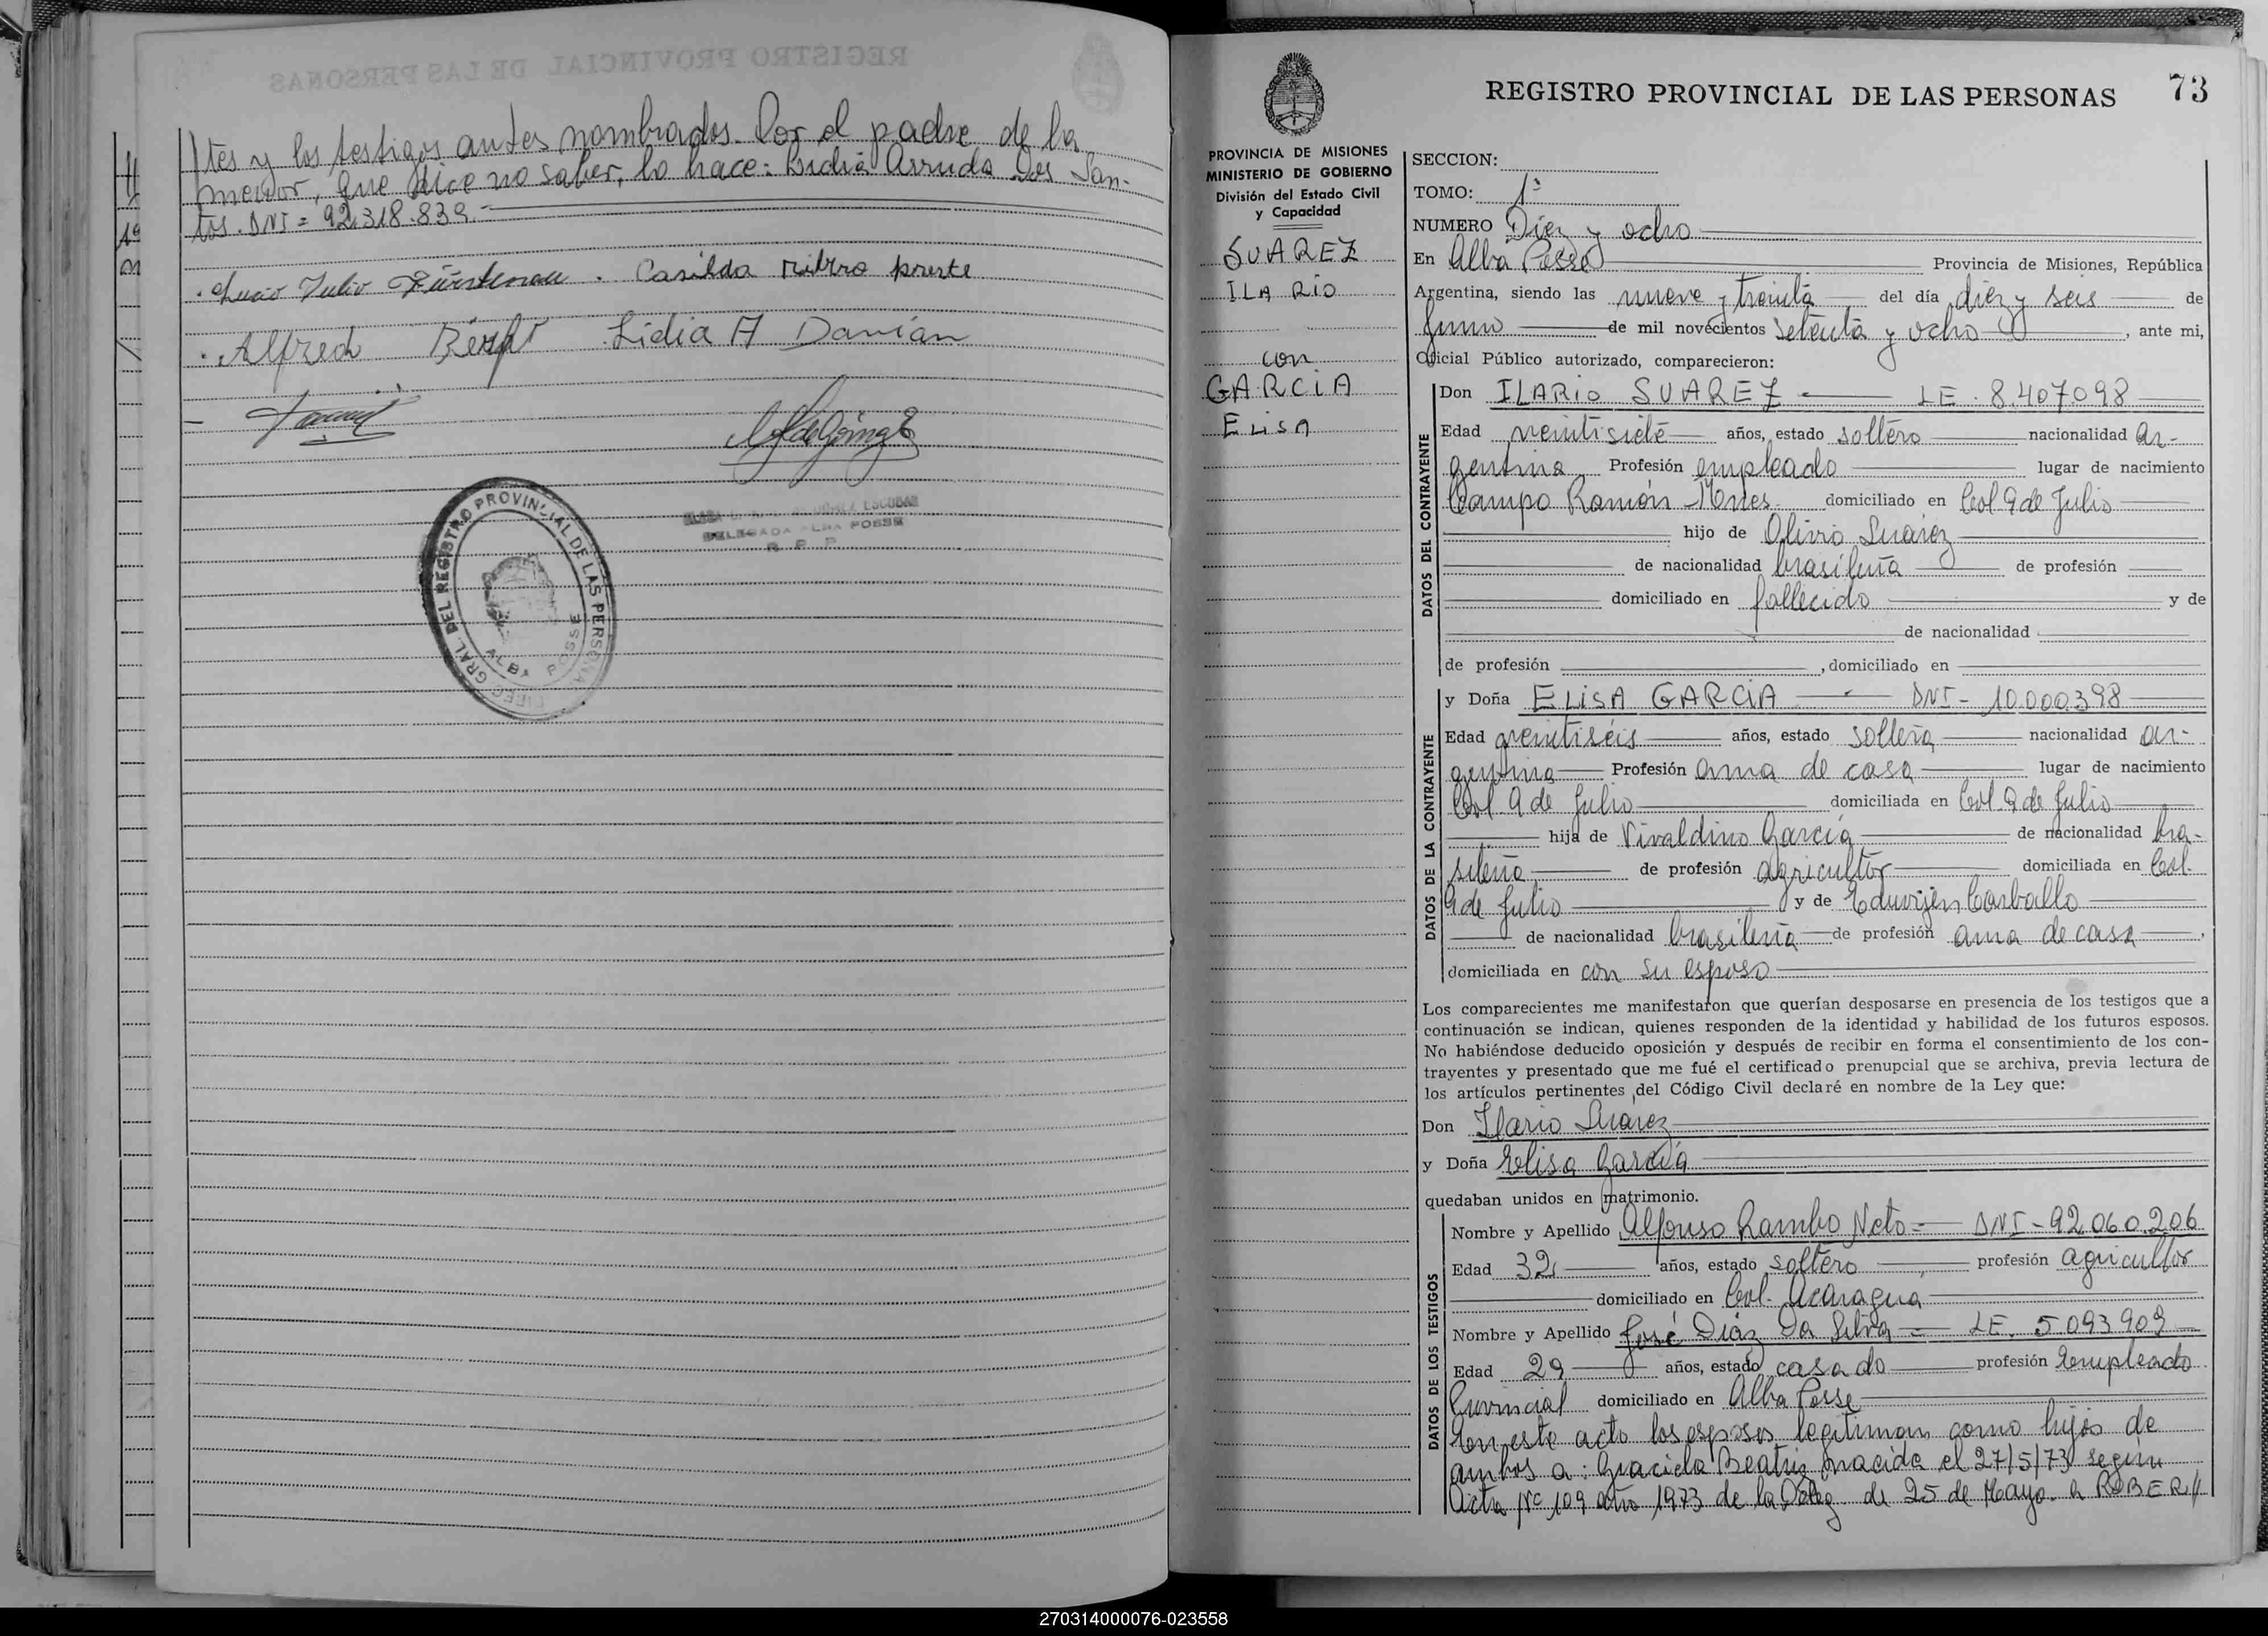 tes y los testigos antes nombrados. Por el padre de la
menor, que dice no saber, lo hace: Lidia Arruda Dos San-
tos. DNI = 92.318.839.-
Lucio Julio Fürstenau. Casilda ribero preste
Alfredo Lidia A Davían
REGISTRO PROVINCIAL DE LAS PERSONAS
ALBA POSSE
DELEGADA ALBA POSSE
R. P. P.
REGISTRO PROVINCIAL DE LAS PERSONAS 73
PROVINCIA DE MISIONES
MINISTERIO DE GOBIERNO
División del Estado Civil
y Capacidad
SUAREZ
ILARIO
con
GARCIA
ELISA
SECCION:
TOMO: 1º
NUMERO Diez y ocho
En Alba Posse Provincia de Misiones, República
Argentina, siendo las nueve y treinta del día diez y seis de
Junio de mil novecientos setenta y ocho, ante mi,
Oficial Público autorizado, comparecieron:
DATOS DEL CONTRAYENTE
Don ILARIO SUAREZ - LE. 8.407.098
Edad veintisiete años, estado soltero nacionalidad ar-
gentina Profesión empleado lugar de nacimiento
Campo Ramón - Mnes. domiciliado en Col. 9 de Julio
hijo de Olivio Suarez
de nacionalidad brasileña de profesión
domiciliado en fallecido y de
de nacionalidad
de profesión , domiciliado en
DATOS DE LA CONTRAYENTE
y Doña ELISA GARCIA - DNI - 10.000.398
Edad veintiséis años, estado soltera nacionalidad ar-
gentina Profesión ama de casa lugar de nacimiento
Col. 9 de Julio domiciliada en Col. 9 de Julio
hija de Vivaldino García de nacionalidad bra-
sileña de profesión agricultor domiciliada en Col.
9 de Julio y de Eduvijen Carballo
de nacionalidad brasileña de profesión ama de casa,
domiciliada en con su esposo
Los comparecientes me manifestaron que querían desposarse en presencia de los testigos que a
continuación se indican, quienes responden de la identidad y habilidad de los futuros esposos.
No habiéndose deducido oposición y después de recibir en forma el consentimiento de los con-
trayentes y presentado que me fué el certificado prenupcial que se archiva, previa lectura de
los artículos pertinentes del Código Civil declaré en nombre de la Ley que:
Don Ilario Suarez
y Doña Elisa García
quedaban unidos en matrimonio.
DATOS DE LOS TESTIGOS
Nombre y Apellido Alfonso Rambo Neto = DNI - 92.060.206
Edad 32 años, estado soltero profesión agricultor
domiciliado en Col. Acaragua
Nombre y Apellido José Díaz Da Silva = LE. 5.093.909
Edad 29 años, estado casado profesión Empleado
Provincial domiciliado en Alba Posse
En este acto los esposos legitiman como hijos de
ambos a: Graciela Beatriz nacida el 27/5/73 según
Acta Nº 109 año 1973 de la Deleg. de 25 de Mayo. a ROBER//
270314000076-023558